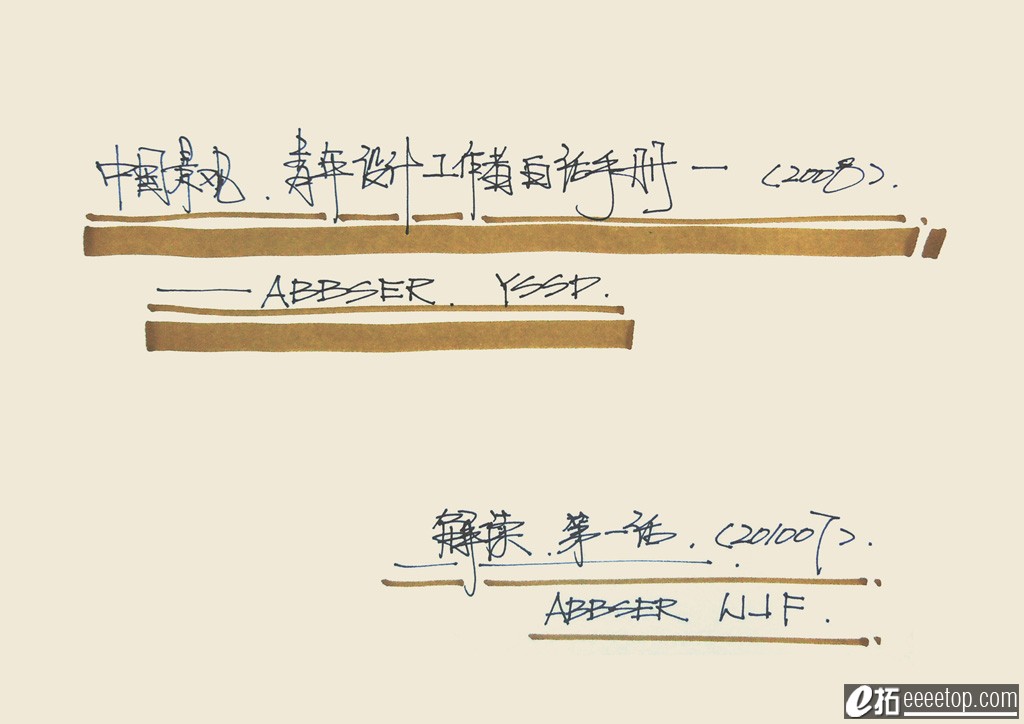 中国景观.青年设计工作者自话手册一(2008).
——ABBSER. YSSD.
解读.第一话.(201007).
ABBSER WJF.
e拓 eeeetop.com